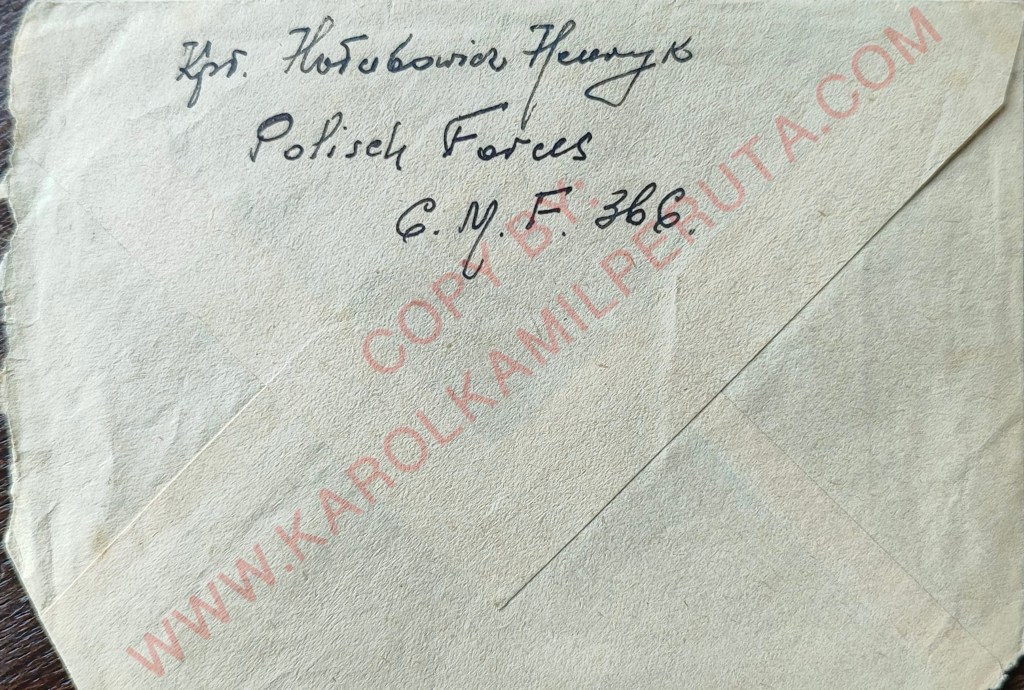 Kpt. Hołubowicz Henryk
Polisch Forces
C. M. F. 366.
COPY BY:
WWW.KAROLKAMILPERUTA.COM